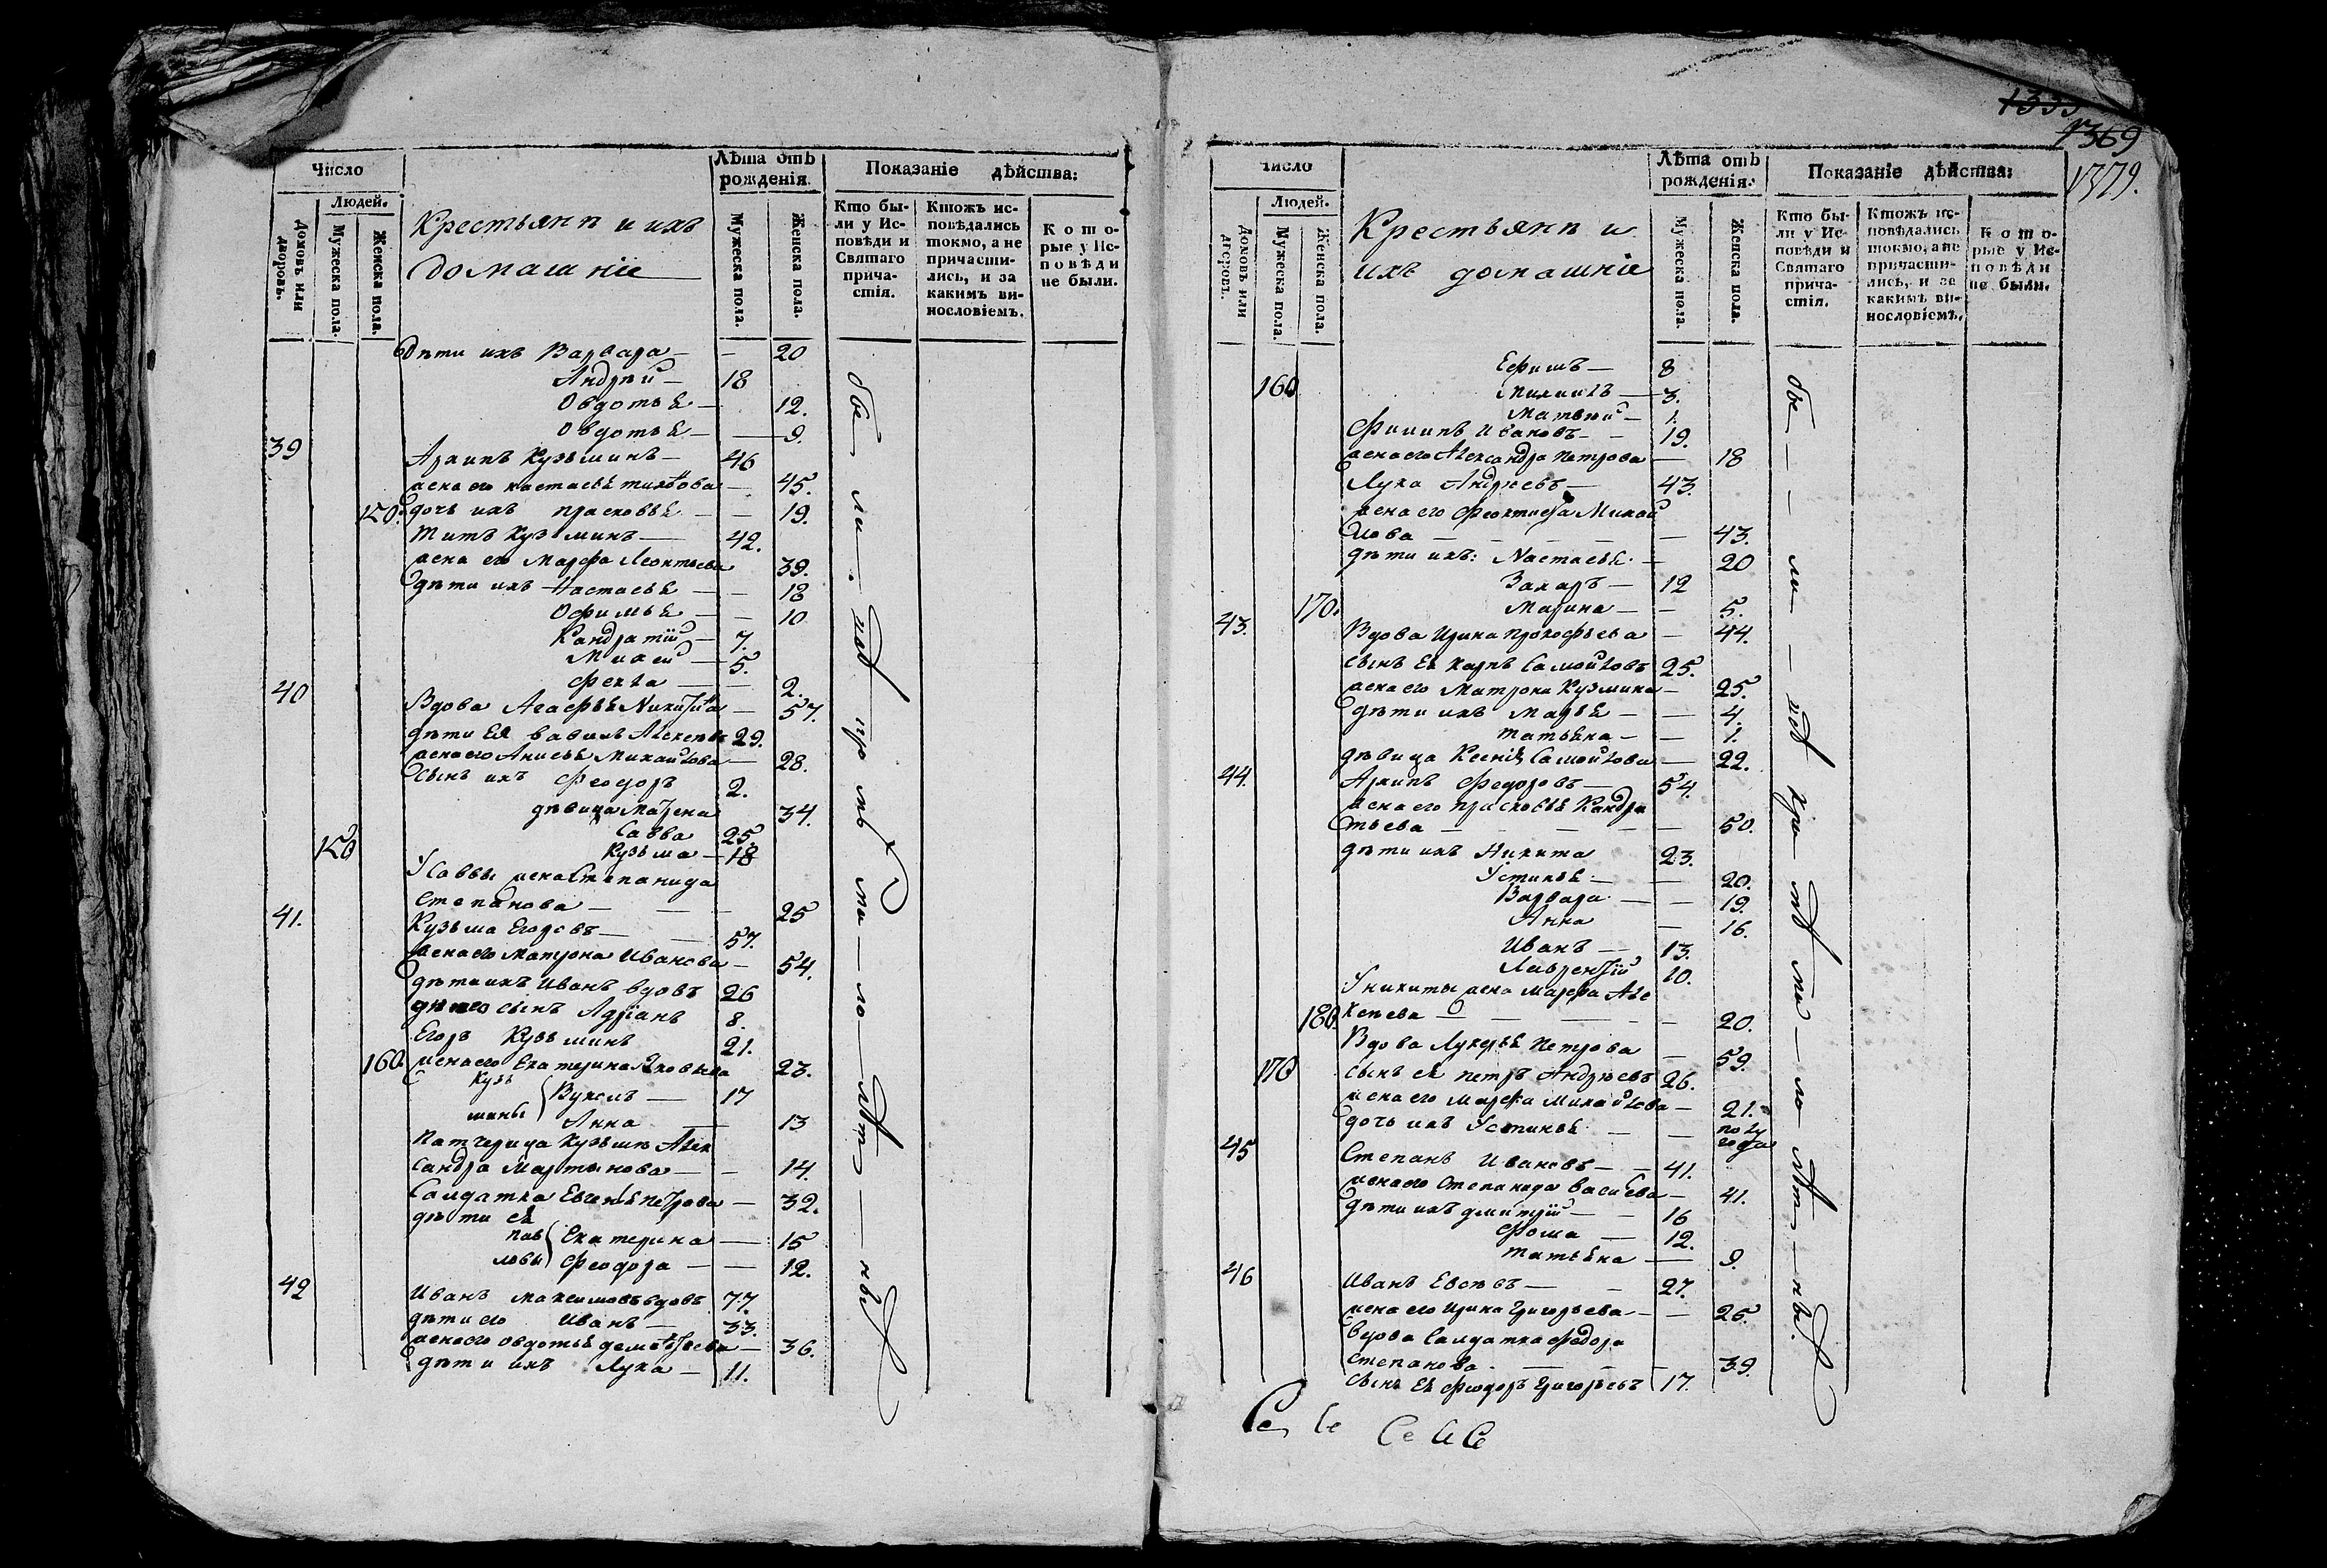 Число
Людей.
Домовъ или дворовъ.
Мужеска пола.
Женска пола.
Крестьянѣ и ихъ
домашніе
Лѣта отъ
рожденія.
Мужеска пола.
Женска пола.
Показаніе дѣйства:
Кто бы-
ли у Ис-
повѣди и
Святаго
прича-
стія.
Ктожъ ис-
повѣдались
токмо, а не
причасти-
лись, и за
какимъ ви-
нословіемъ.
Кото-
рые у Ис-
повѣди
не были.
Дѣти ихъ Варвара — — 20
Андрѣй — 18
Овдотья — 12.
Овдотья — — 9.
39 Архипъ Кузьминъ — 46
жена его настасья титова — 45.
150. дочь ихъ прасковья — — 19.
Титъ Кузминъ — 42.
жена его Марфа Леонтьева 39.
дѣти ихъ Настасья — — 18
Офимья — — 10
Кандратій — 7.
Михей — 5.
Фекла — — 2.
40 Вдова Агафья Никитина — 57.
дѣти ея Вавилъ Алексѣевъ 29.
жена его Анисья Михайлова — 28.
сынъ ихъ Феодоръ 2.
дѣвица Марена 34.
Савва 25.
150 Кузьма — 18
У Саввы жена Степанида
Степанова — — — 25
41. Кузьма Егоровъ — — 57.
жена его Матрона Иванова — 54.
дѣти ихъ Иванъ вдовъ 26
сынъ Адріанъ 8.
Егоръ Кузьминъ 21.
160. жена его Екатерина Яковлева 23.
Кузь
мины Вуколъ — 17
Анна — 13
Патчерица Кузьмы Алек
сандра Мартынова — — 14.
Салдатка Евгенья Петрова — 32.
дѣти ея
пав
ловы Екатерина — 15
Феодора — — 12.
42 Иванъ Максимовъ вдовъ 77.
дѣти его Иванъ — 33.
жена его Овдотья Дементьева — 36.
дѣти ихъ Лука — 11.
1369
1379.
Число
Людей.
Домовъ или дворовъ.
Мужеска пола.
Женска пола.
Крестьянѣ и
ихъ домашніе
Лѣта отъ
рожденія.
Мужеска пола.
Женска пола.
Показаніе дѣйства:
Кто бы-
ли у Ис-
повѣди и
Святаго
прича-
стія.
Ктожъ ис-
повѣдались
токмо, а не
причасти-
лись, и за
какимъ ви-
нословіемъ.
Кото-
рые у Ис-
повѣди
не были.
Ефимъ — 8
160 Михаилъ — 3.
Матвѣй — 1.
Филипъ Ивановъ — 19.
жена его Александра Петрова — 18
Лука Андреевъ — 43.
жена его Феоктиста Михай
лова — — — — 43.
дѣти ихъ: Настасья — 20
Захаръ — 12
170. Марина — — 5.
43. Вдова Ирина Прокофьева — 44.
сынъ ея Карпъ Самойловъ 25.
жена его Матрона Кузмина — 25.
дѣти ихъ Марья — — 4.
татьяна — — 1.
дѣвица Ксенія Самойлова — 22.
44. Архипъ Федоровъ — 54.
жена его прасковья Кандра
тьева — — — — 50.
дѣти ихъ Никита 23.
Устинья — — 20.
Варвара — — 19.
Анна — 16.
Иванъ — 13.
Лаврентій 10.
У никиты жена Марфа Але
180. ксеева — — — — 20.
Вдова Лукерья Петрова — 59.
170 сынъ ея петръ Андреевъ 26.
жена его Марфа Михайлова — 21.
дочь ихъ Устинья — — полу
года
45 Степанъ Ивановъ — — 41.
жена его Степанида Васильева — 41.
дѣти ихъ Дмитрій — — 16
Фома — 12.
татьяна — 9.
46 Иванъ Евсѣевъ — — 27.
жена его Ирина Григорьева — — 25.
вдова Салдатка Федора
Степанова. — — — 39.
сынъ ея Феодоръ Григорьевъ 17.
Се Се Се